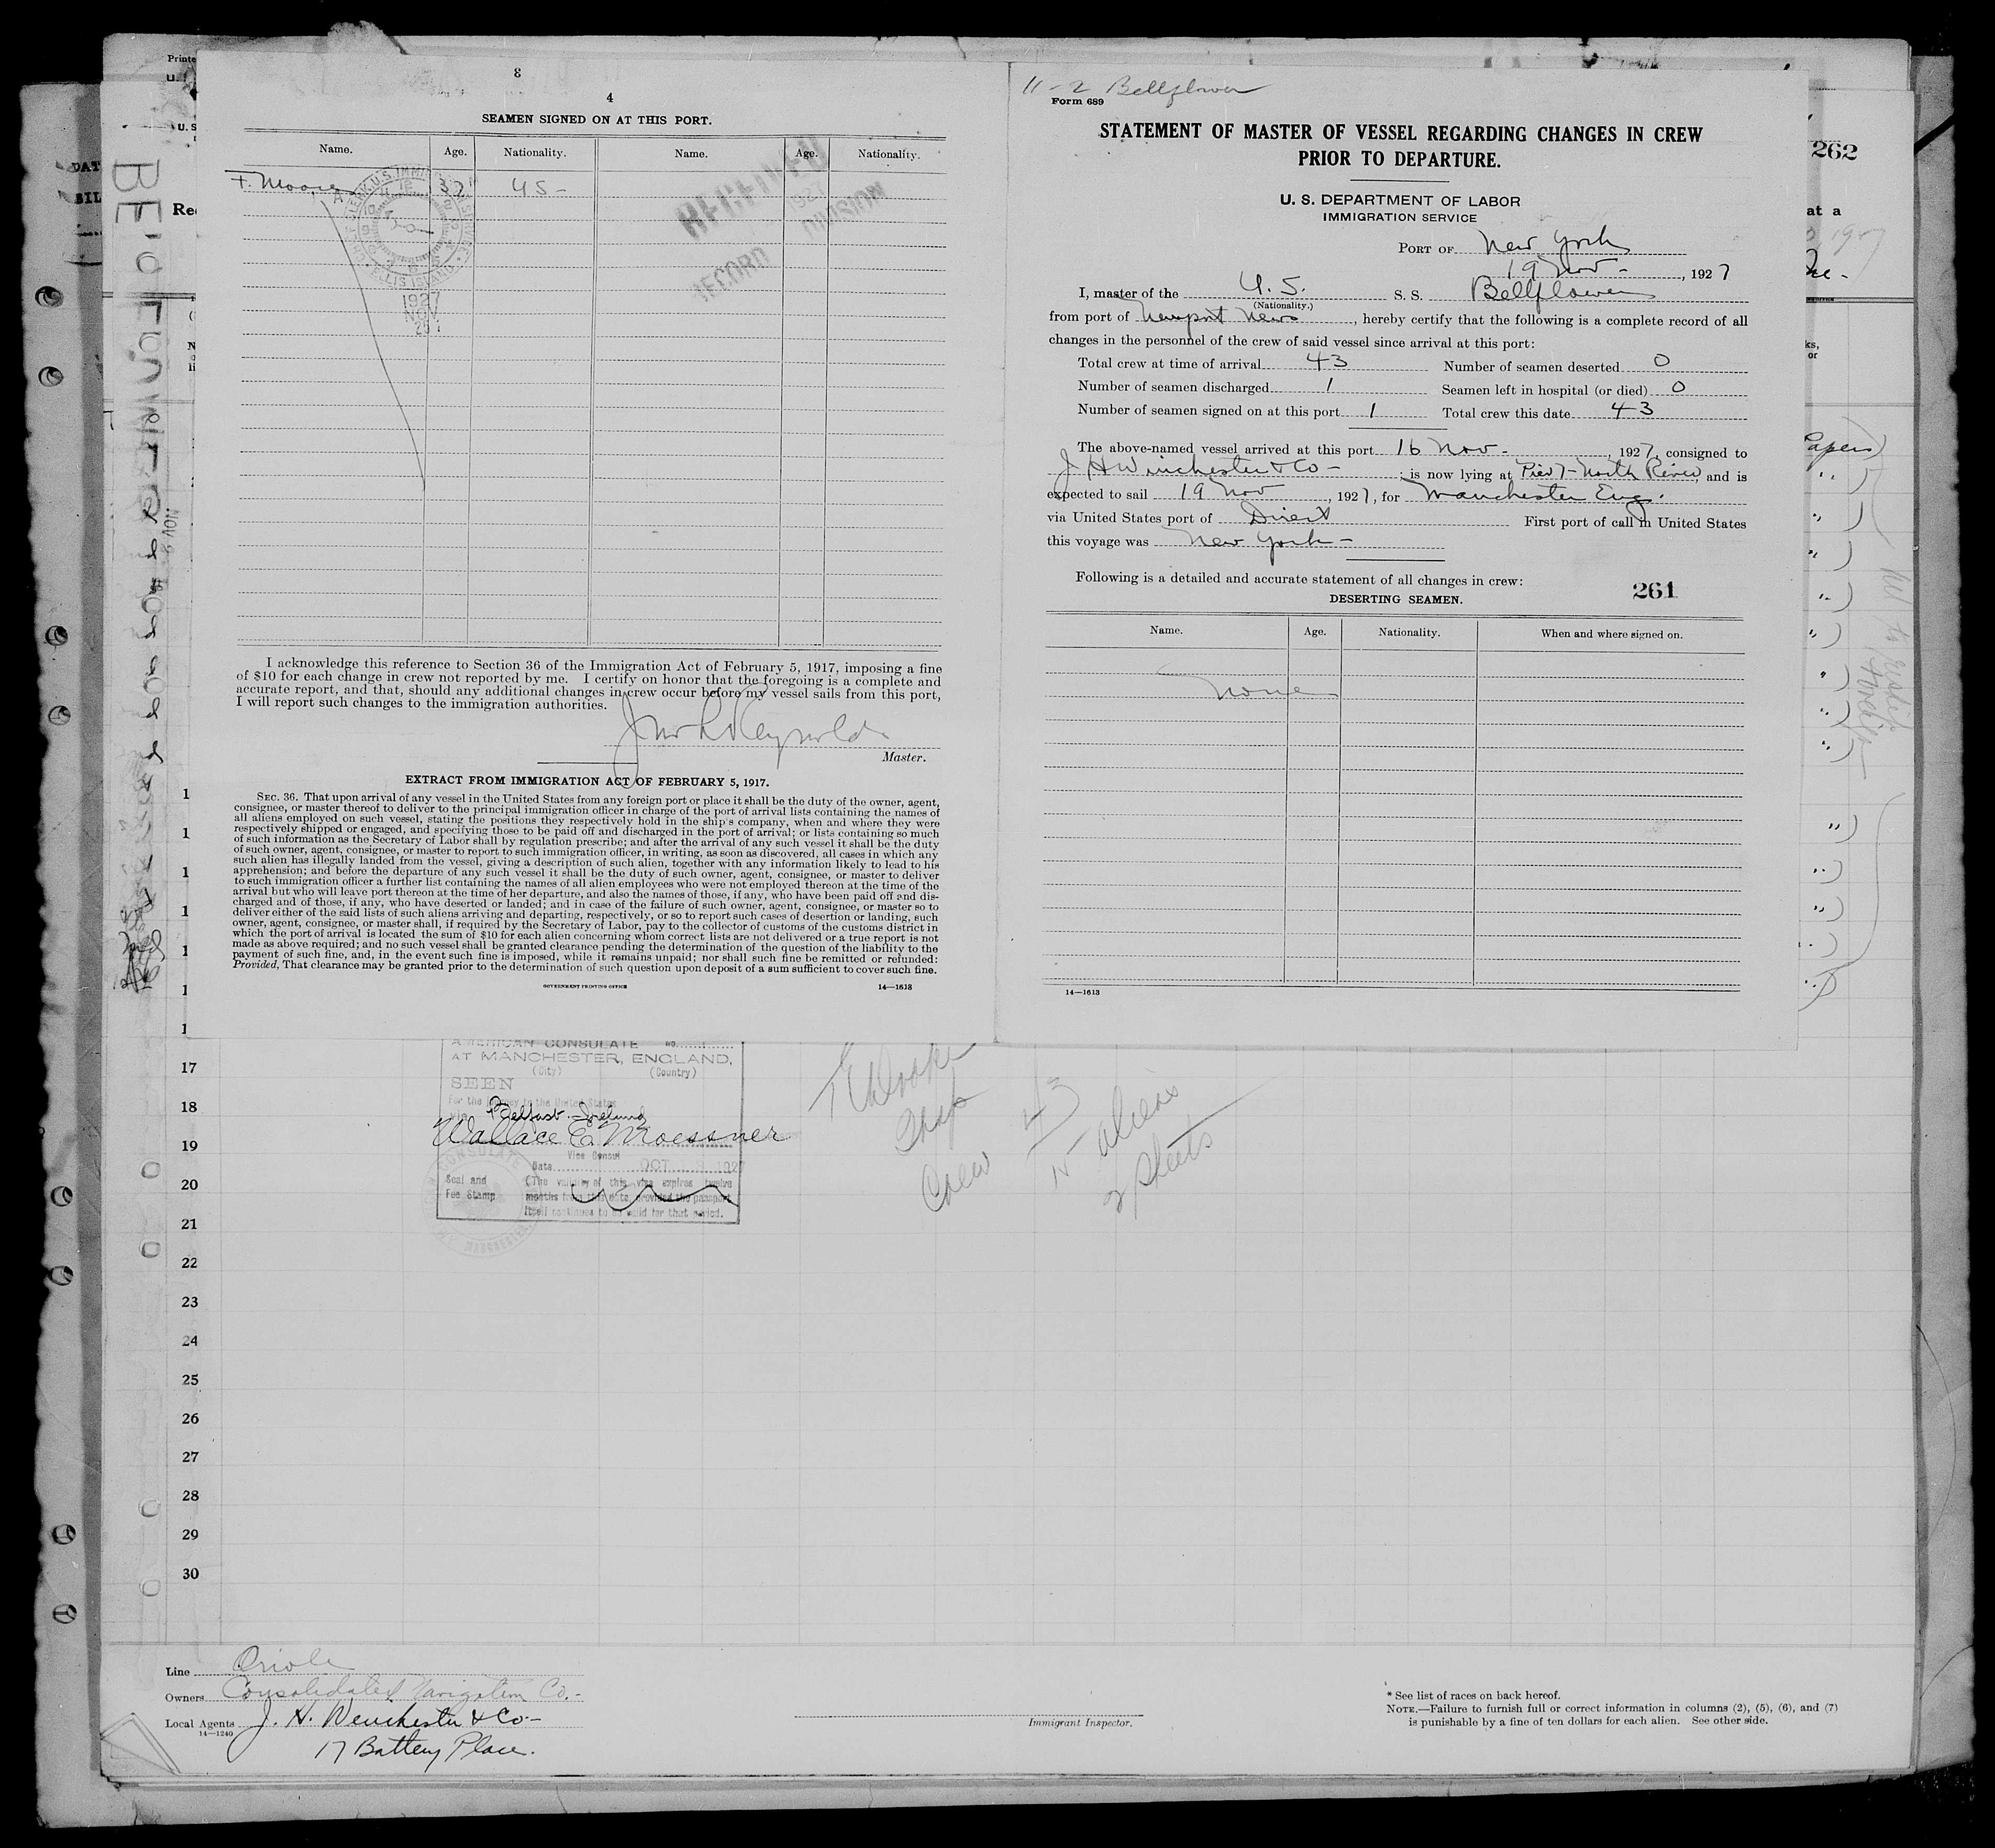 8
4
SEAMEN SIGNED ON AT THIS PORT.
Name. Age. Nationality. Name. Age. Nationality.
F. Moore 37 US-
RECEIVED
1927
RECORD DIVISION
U.S. IMMIGR
ELLIS ISLAND
1927
NOV
I acknowledge this reference to Section 36 of the Immigration Act of February 5, 1917, imposing a fine
of $10 for each change in crew not reported by me. I certify on honor that the foregoing is a complete and
accurate report, and that, should any additional changes in crew occur before my vessel sails from this port,
I will report such changes to the immigration authorities.
Jno L Reynolds
Master.
EXTRACT FROM IMMIGRATION ACT OF FEBRUARY 5, 1917.
SEC. 36. That upon arrival of any vessel in the United States from any foreign port or place it shall be the duty of the owner, agent,
consignee, or master thereof to deliver to the principal immigration officer in charge of the port of arrival lists containing the names of
all aliens employed on such vessel, stating the positions they respectively hold in the ship's company, when and where they were
respectively shipped or engaged, and specifying those to be paid off and discharged in the port of arrival; or lists containing so much
of such information as the Secretary of Labor shall by regulation prescribe; and after the arrival of any such vessel it shall be the duty
of such owner, agent, consignee, or master to report to such immigration officer, in writing, as soon as discovered, all cases in which any
such alien has illegally landed from the vessel, giving a description of such alien, together with any information likely to lead to his
apprehension; and before the departure of any such vessel it shall be the duty of such owner, agent, consignee, or master to deliver
to such immigration officer a further list containing the names of all alien employees who were not employed thereon at the time of the
arrival but who will leave port thereon at the time of her departure, and also the names of those, if any, who have been paid off and dis-
charged and of those, if any, who have deserted or landed; and in case of the failure of such owner, agent, consignee, or master so to
deliver either of the said lists of such aliens arriving and departing, respectively, or so to report such cases of desertion or landing, such
owner, agent, consignee, or master shall, if required by the Secretary of Labor, pay to the collector of customs of the customs district in
which the port of arrival is located the sum of $10 for each alien concerning whom correct lists are not delivered or a true report is not
made as above required; and no such vessel shall be granted clearance pending the determination of the question of the liability to the
payment of such fine, and, in the event such fine is imposed, while it remains unpaid; nor shall such fine be remitted or refunded:
Provided, That clearance may be granted prior to the determination of such question upon deposit of a sum sufficient to cover such fine.
GOVERNMENT PRINTING OFFICE 14—1613
11-2 Bellflower
Form 689
STATEMENT OF MASTER OF VESSEL REGARDING CHANGES IN CREW
PRIOR TO DEPARTURE.
U. S. DEPARTMENT OF LABOR
IMMIGRATION SERVICE
PORT OF New York
19 Nov - , 1927
I, master of the U.S. S. S. Bellflower
(Nationality.)
from port of Newport News, hereby certify that the following is a complete record of all
changes in the personnel of the crew of said vessel since arrival at this port:
Total crew at time of arrival 43 Number of seamen deserted 0
Number of seamen discharged 1 Seamen left in hospital (or died) 0
Number of seamen signed on at this port 1 Total crew this date 43
The above-named vessel arrived at this port 16 Nov - , 1927, consigned to
J H Winchester & Co - ; is now lying at Pier 7 - North River, and is
expected to sail 19 Nov , 1927, for Manchester Eng.
via United States port of Direct First port of call in United States
this voyage was New York -
Following is a detailed and accurate statement of all changes in crew:
261
DESERTING SEAMEN.
Name. Age. Nationality. When and where signed on.
None
14—1613
262
at a
Papers)
AMERICAN CONSULATE No.
AT MANCHESTER, ENGLAND,
(City) (Country)
SEEN
For the journey to the United States
via Belfast. Ireland
Wallace E. Moessner
Vice Consul
Date OCT 1927
Seal and
Fee Stamp
(The validity of this visa expires twelve
months from this date provided the passport
itself continues to be valid for that period.
Crew 43
15 aliens
2 sheets
17
18
19
20
21
22
23
24
25
26
27
28
29
30
Line Oriole
Owners Consolidated Navigation Co.-
Local Agents J. H. Winchester & Co-
14—1240
17 Battery Place.
Immigrant Inspector.
* See list of races on back hereof.
NOTE.—Failure to furnish full or correct information in columns (2), (5), (6), and (7)
is punishable by a fine of ten dollars for each alien. See other side.